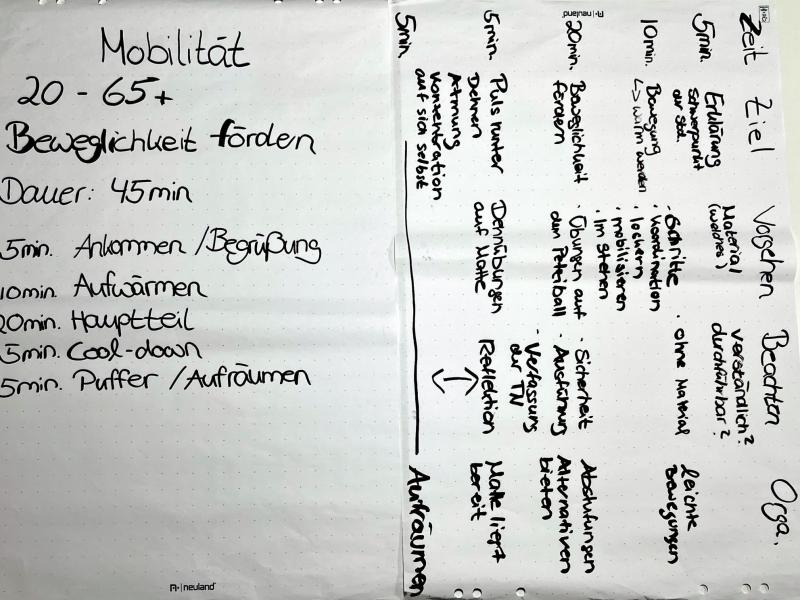 Mobilität
20 - 65+
Beweglichkeit förden
Dauer: 45min
5min. Ankommen / Begrüßung
10min Aufwärmen
20min. Hauptteil
5min. Cool-down
5min. Puffer / Aufräumen
neuland
neuland
Zeit Ziel Vorgehen Beachten Orga.
5min. Erklärung Material verständlich?
Schwerpunkt (welches) durchführbar?
der Std.
10min. Bewegung · Schritte · ohne Material leichte
↳ warm werden · Koordination Bewegungen
· lockern
· mobilisieren
· im stehen
20min. Beweglichkeit · Übungen auf · Sicherheit Abstufungen
förden dem Petziball · Ausführung Alternativen
· Verfassung bieten
der TN
5min. Puls runter Dehnübungen Reflektion Matte liegt
Dehnen auf Matte bereit
Atmung
Konzentration
auf sich selbst
5min Aufräumen